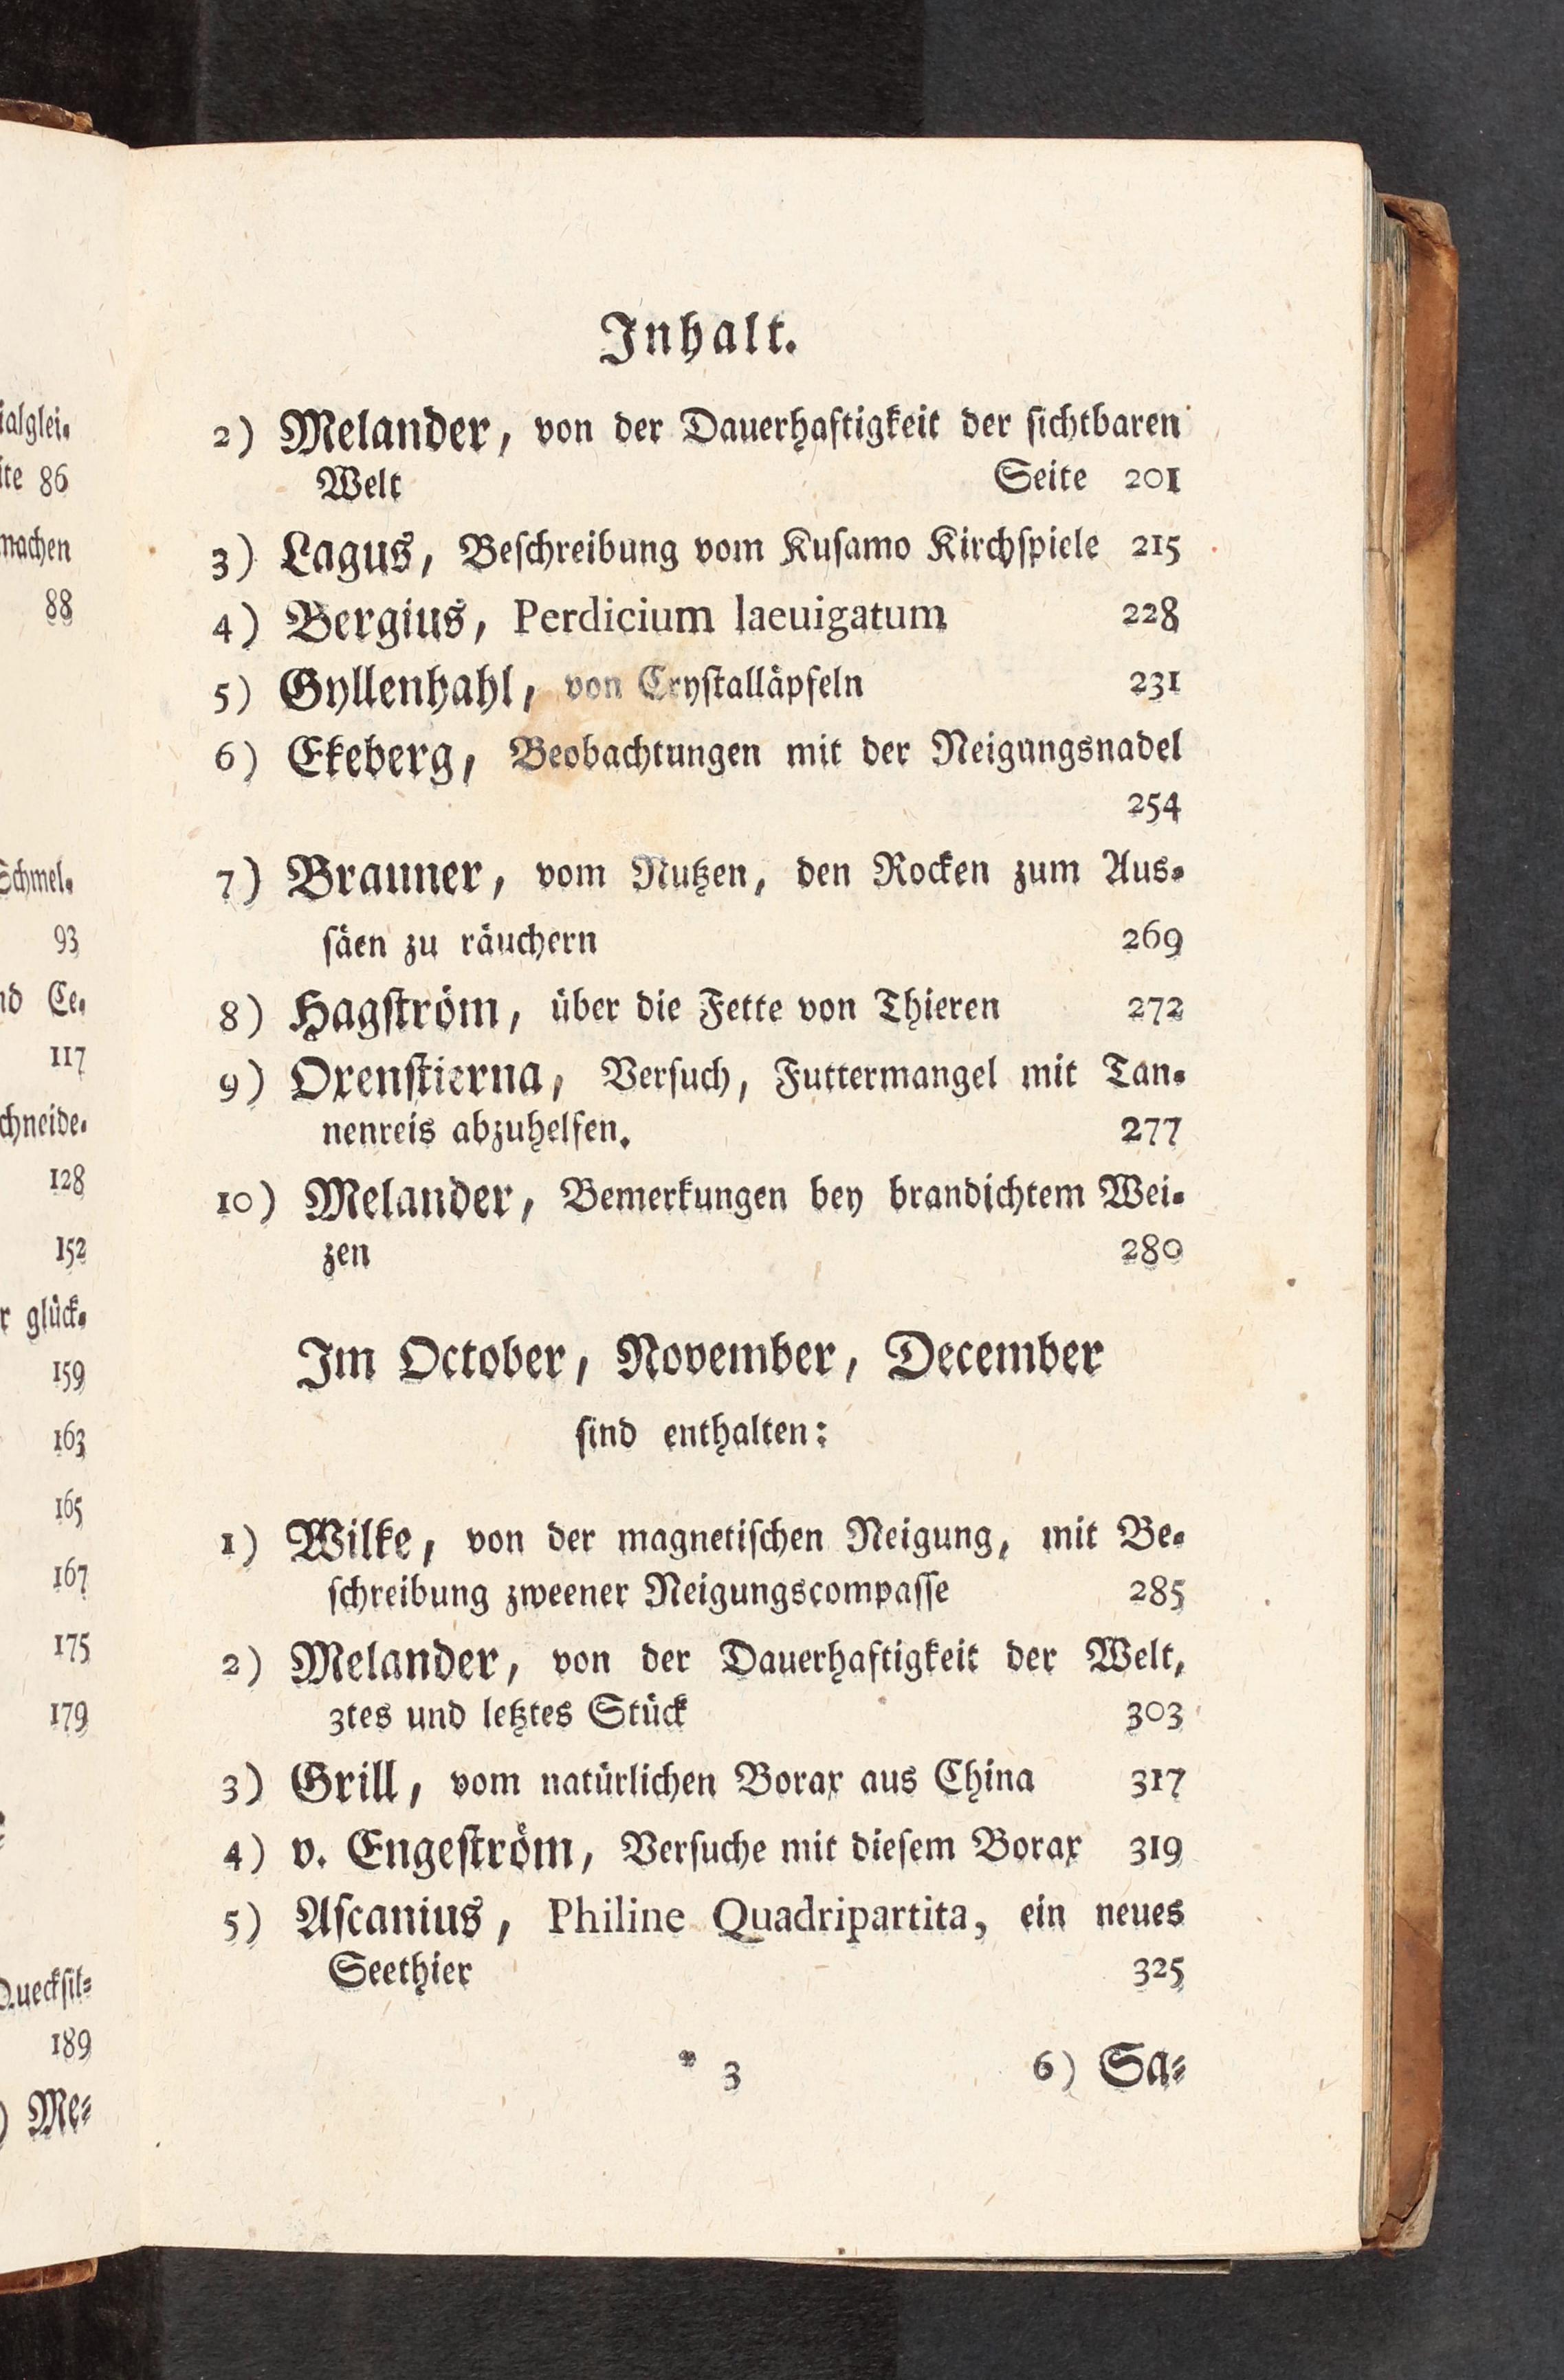 ialglei-
ite 86
machen
88
Schmel-
93
nd Ce-
117
chneide-
128
152
r glück-
159
163
165
167
175
179
Quecksil-
189
) Me-
Inhalt.
2) Melander, von der Dauerhaftigkeit der sichtbaren
Welt Seite 201
3) Lagus, Beschreibung vom Kusamo Kirchspiele 215
4) Bergius, Perdicium laeuigatum 228
5) Gyllenhahl, von Crystalläpfeln 231
6) Ekeberg, Beobachtungen mit der Neigungsnadel
254
7) Brauner, vom Nutzen, den Rocken zum Aus-
säen zu räuchern 269
8) Hagström, über die Fette von Thieren 272
9) Oxenstierna, Versuch, Futtermangel mit Tan-
nenreis abzuhelfen. 277
10) Melander, Bemerkungen bey brandichtem Wei-
zen 280
Im October, November, December
sind enthalten:
1) Wilke, von der magnetischen Neigung, mit Be-
schreibung zweener Neigungscompasse 285
2) Melander, von der Dauerhaftigkeit der Welt,
3tes und letztes Stück 303
3) Grill, vom natürlichen Borax aus China 317
4) v. Engeström, Versuche mit diesem Borax 319
5) Ascanius, Philine Quadripartita, ein neues
Seethier 325
* 3 6) Sa-